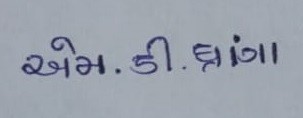 એમ. ડી. ધ્રાંગા